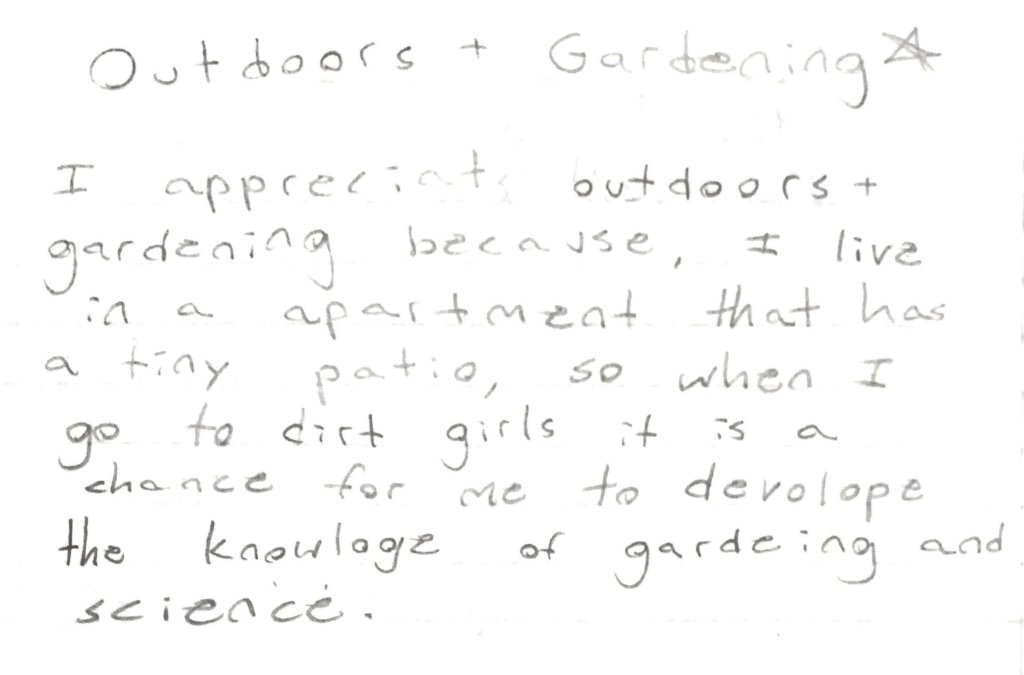 Outdoors + Gardening
I appreciate outdoors +
gardening because, I live
in a apartment that has
a tiny patio, so when I
go to dirt girls it is a
chance for me to devolope
the knowloge of gardeing and
science.